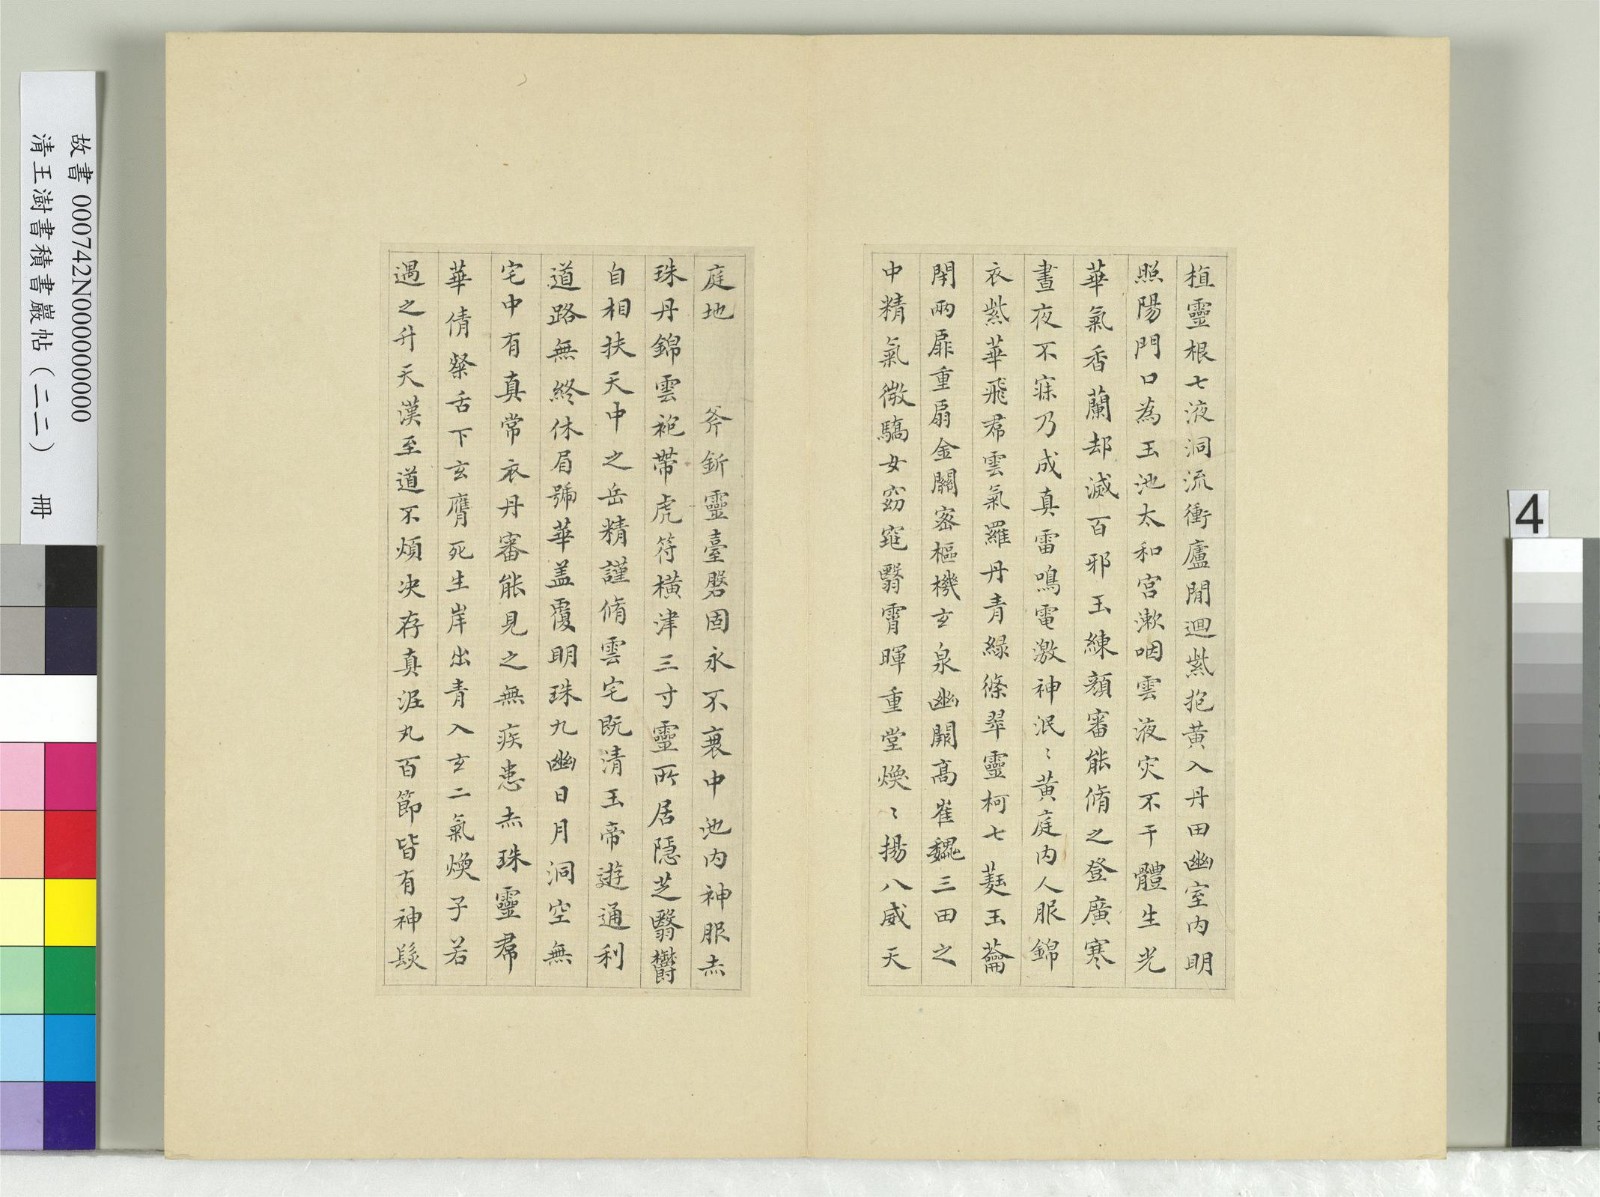 植靈根七液洞流衝廬間迴紫抱黃入丹田幽室內明
照陽門口為玉池太和宮漱咽雲液灾不干體生光
華氣香蘭却滅百邪玉練顏審能脩之登廣寒
晝夜不寐乃成真雷鳴電激神泯〻黃庭內人服錦
衣紫華飛帬雲氣羅丹青綠條翠靈柯七蕤玉籥
閇兩扉重扇金關密樞機玄泉幽闕高崔巍三田之
中精氣微驕女窈窕翳霄暉重堂煥〻揚八威天
庭地 斧斨靈臺磐固永不衰中池內神服赤
珠丹錦雲袍帶虎符橫津三寸靈所居隱芝翳鬱
自相扶天中之岳精謹脩雲宅既清玉帝遊通利
道路無終休眉號華盖覆明珠九幽日月洞空無
宅中有真常衣丹審能見之無疾患赤珠靈帬
華倩粲舌下玄膺死生岸出青入玄二氣煥子若
遇之升天漢至道不煩决存真泥丸百節皆有神髮
故書 000742N000000000
清王澍書積書巖帖（二二） 冊
4